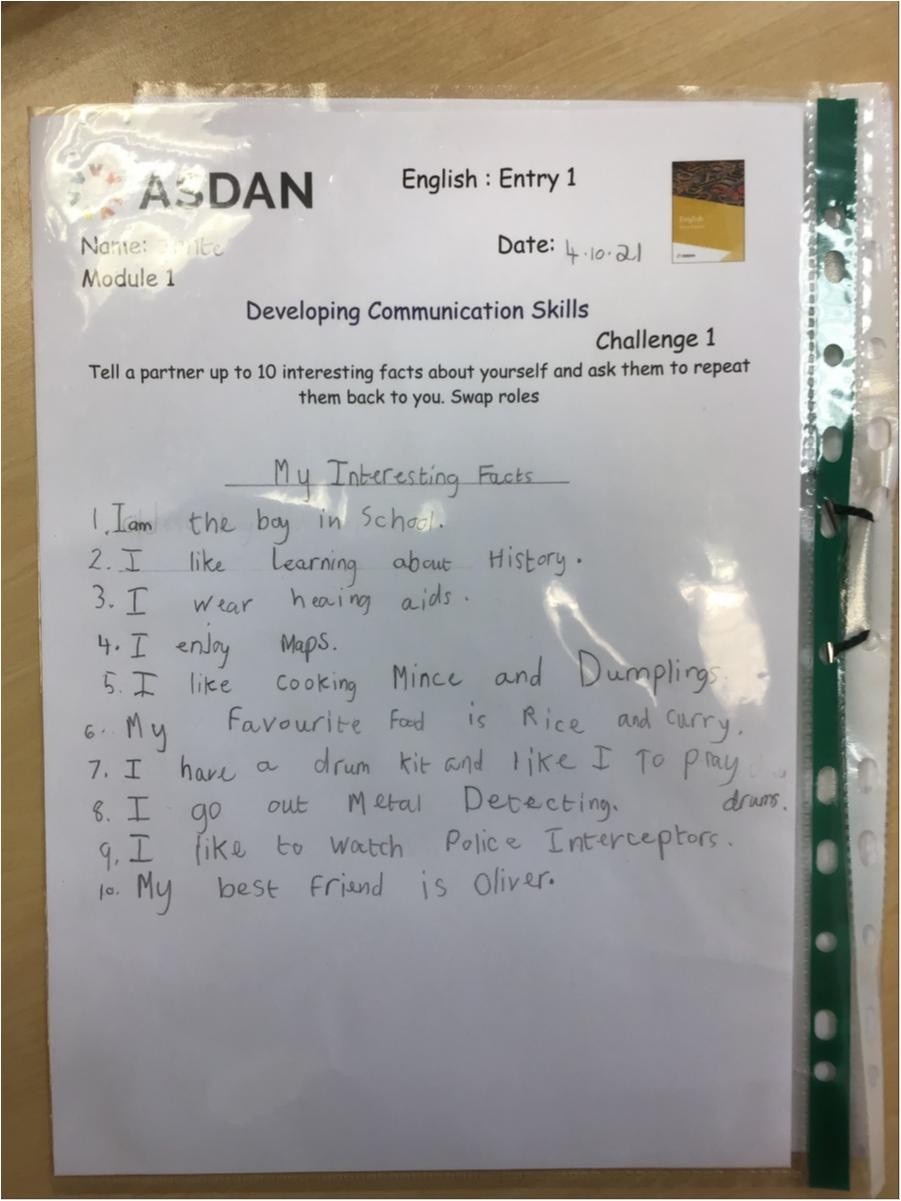 ASDAN
English : Entry 1
English
Name:
Date: 4.10.21
Module 1
Developing Communication Skills
Challenge 1
Tell a partner up to 10 interesting facts about yourself and ask them to repeat
them back to you. Swap roles
My Interesting Facts
1. I am the boy in School.
2. I like Learning about History.
3. I wear heaing aids.
4. I enjoy Maps.
5. I like cooking Mince and Dumplings.
6. My Favourite Food is Rice and Curry.
7. I have a drum kit and like I To pray
drums.
8. I go out Metal Detecting.
9. I like to watch Police Interceptors.
10. My best Friend is Oliver.